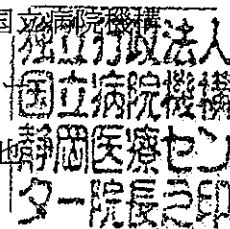 国立病院機構
独立行政法人
国立病院機構
也静岡医療セン
ター院長之印